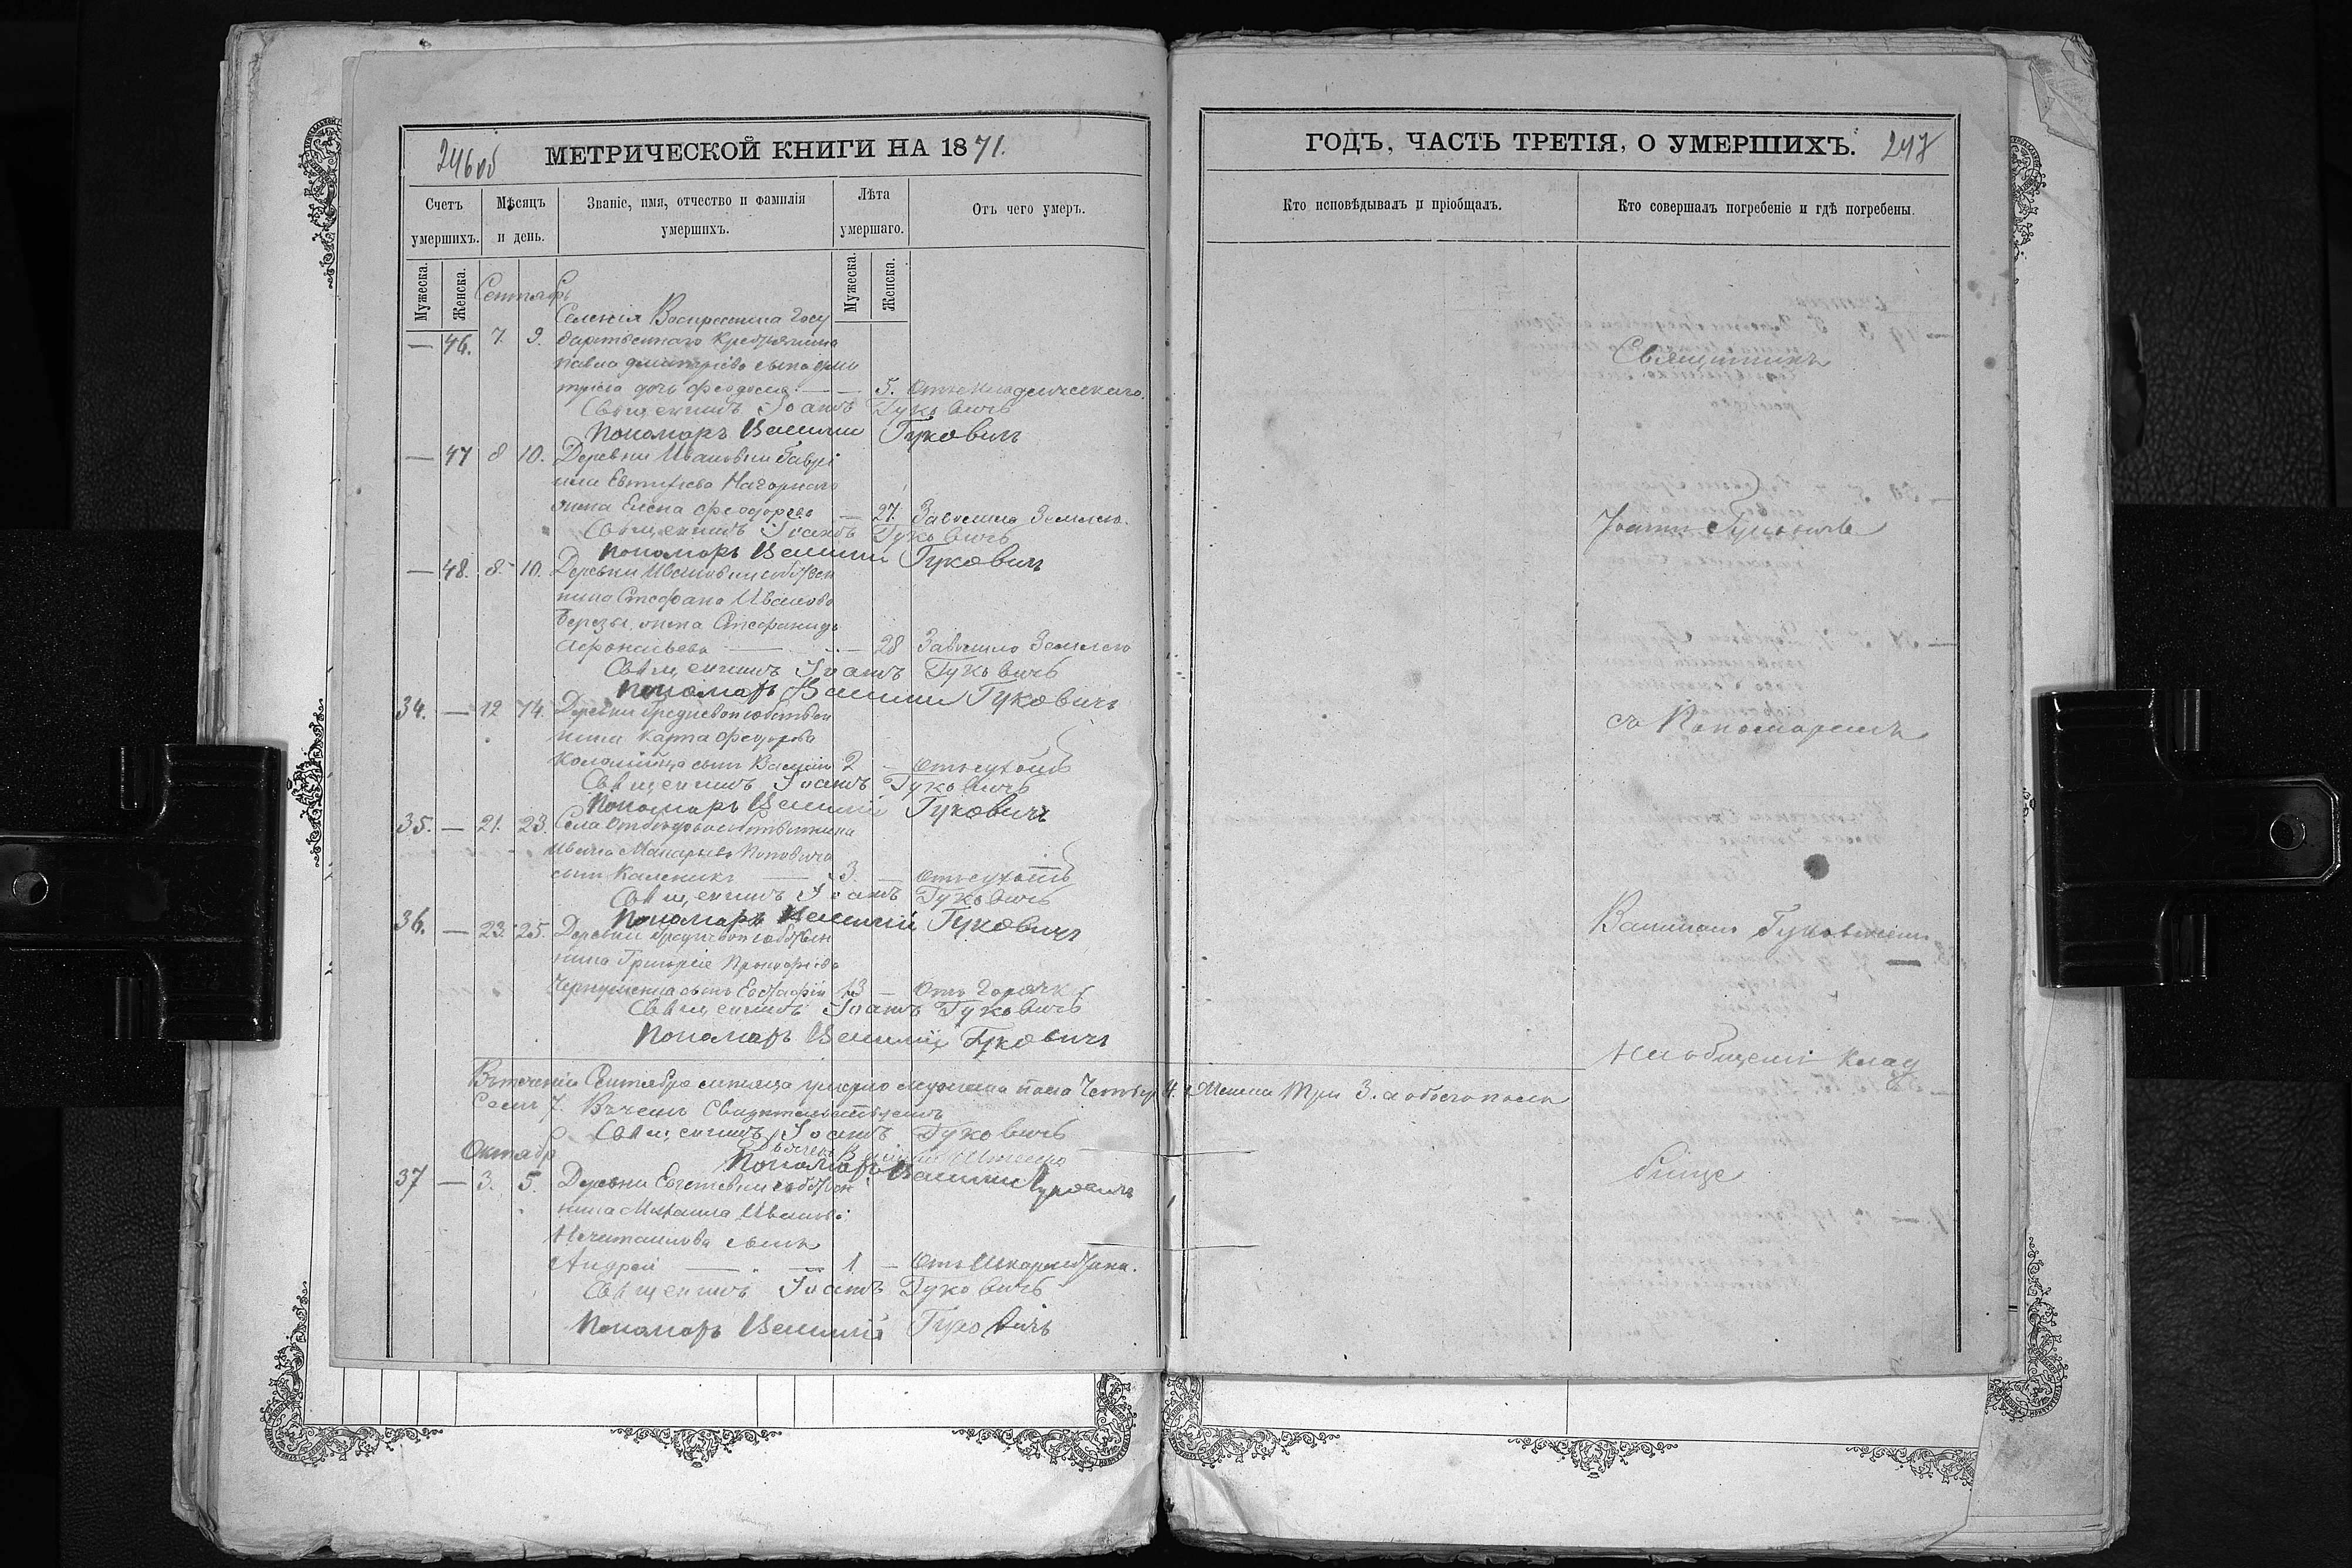 246об МЕТРИЧЕСКОЙ КНИГИ НА 1871.
Счетъ умершихъ.
Мѣсяцъ и день.
Званіе, имя, отчество и фамилія умершихъ.
Лѣта умершаго.
Отъ чего умеръ.
Мужеска. Женска.
Мужеска. Женска.
Сентябрь
Селенія Воскресенска Госу
— 46. 7. 9. дарственнаго Крестьянина
Павла Дмитріева сына Дми
тріева дочь Феодосія — — 5. Отъ младенческаго.
Священникъ Іоаннъ Гуковичъ
Пономарь Василій Гуковичъ
— 47 8 10. Деревни Ивановки Гаврі
ила Евтихіева Нагорнаго
жена Елена Феодорова — 27. Завалило Землею.
Священникъ Іоаннъ Гуковичъ
Пономарь Василий Гуковичъ
— 48. 8. 10. Деревни Ивановки собствен
ника Стефана Иванова
Березы жена Стефанида
Афонасьева — — 28 Завалило Землею
Священникъ Іоаннъ Гуковичъ
Пономарь Василий Гуковичъ
34. — 12 14. Деревни собствен
ника Карпа Феодорова
Коломійца сынъ Василій 2 —
Священникъ Іоаннъ Гуковичъ
Пономарь Василий Гуковичъ
35. — 21. 23. Села собственника
Ивана Макарьева Поповича
сынъ Каленикъ — 3. —
Священникъ Іоаннъ Гуковичъ
Пономарь Василий Гуковичъ
36. — 23. 25. Деревни собствен
ника Григорія Прокофіева
сынъ Евстафій 13 — Отъ Горячки
Священникъ Іоаннъ Гуковичъ
Пономарь Василий Гуковичъ
Втеченіи Сентября мѣсяца умерло мужеска пола Четыре 4. Женска Три 3. а обоего пола
Семь 7. Въ чемъ Свидѣтельствуемъ
Священникъ Іоаннъ Гуковичъ
Пономарь Василий Гуковичъ
Октябрь
37 — 3. 5. Деревни собствен
ника Михаила Иванова
сынъ
Андрей — — 1 —
Священникъ Іоаннъ Гуковичъ
Пономарь Василий Гуковичъ
ГОДЪ, ЧАСТЬ ТРЕТІЯ, О УМЕРШИХЪ. 247
Кто исповѣдывалъ и пріобщалъ.
Кто совершалъ погребеніе и гдѣ погребены.
Священникъ
Іоаннъ Гуковичъ
съ Пономаремъ
Василіемъ Гуковичемъ
На общемъ Клад
бище